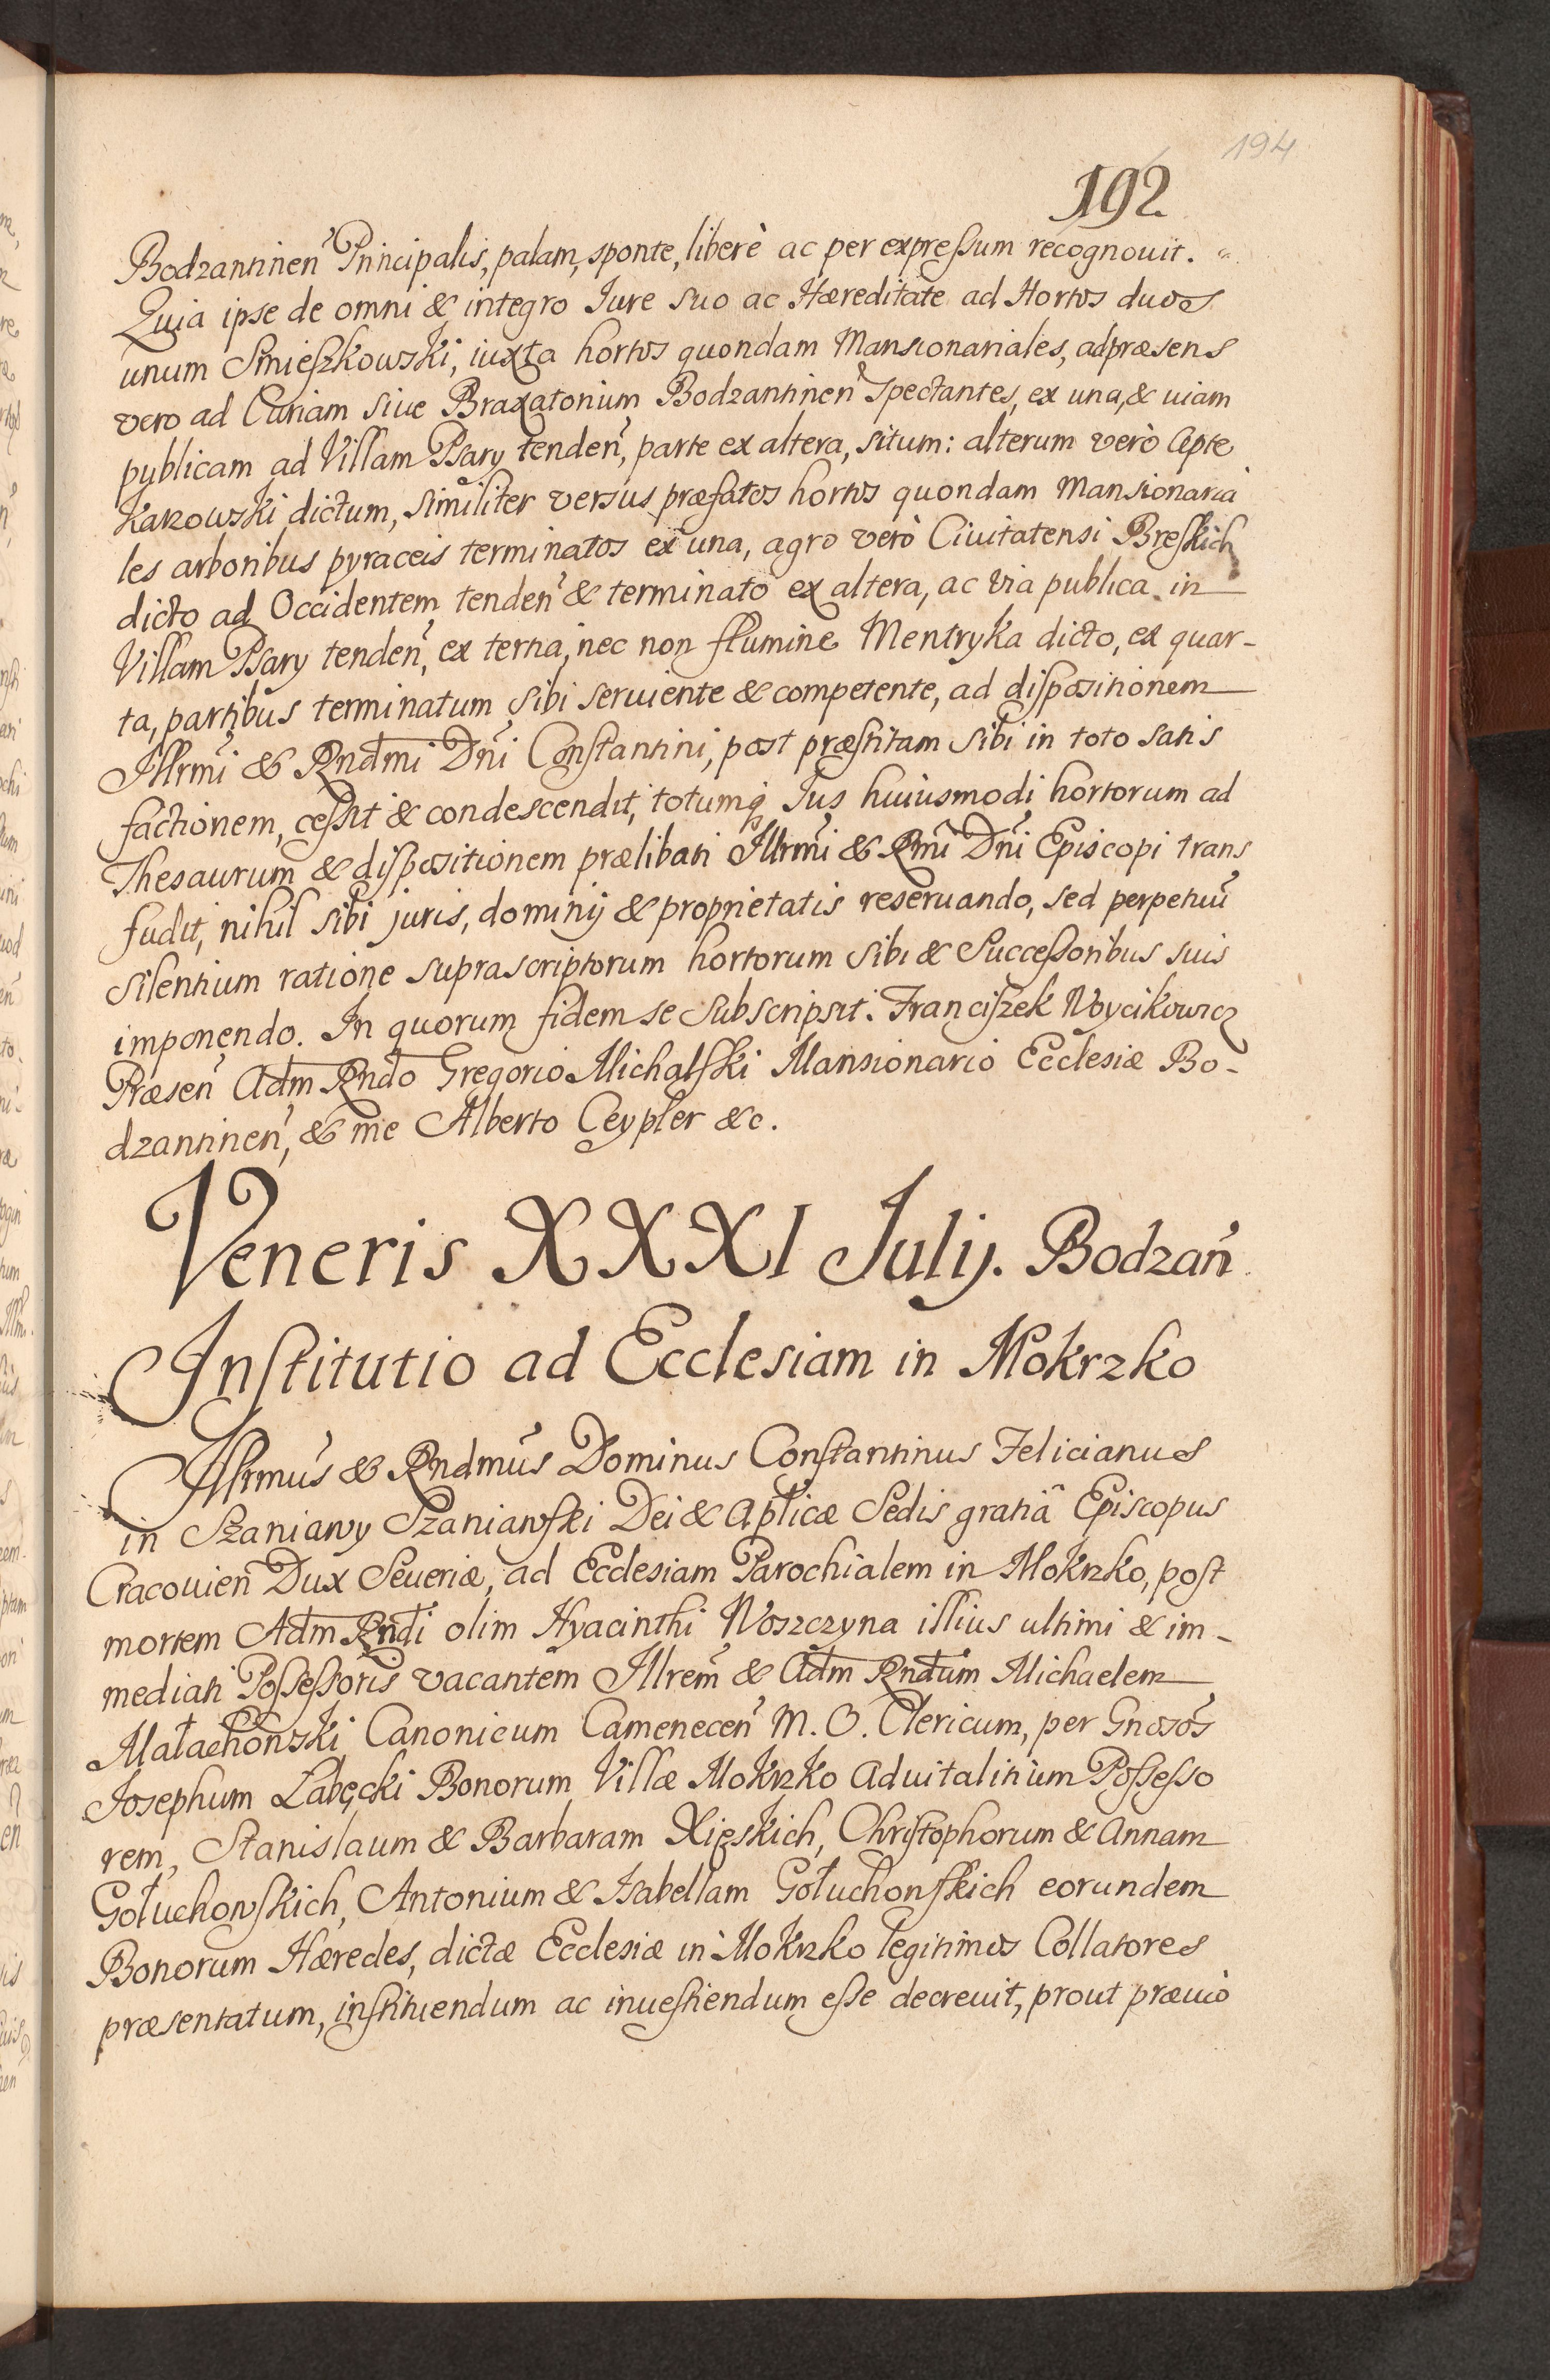 194
192
Bodzantinen̄ Principalis, palam, sponte, liberè ac per expreſsum recognouit.
Quia ipse de omni & integro Iure suo ac Hæreditate ad Hortos duos
unum Smieſzkowski, iuxta hortos quondam Mansionariales, adpræsens
vero ad Curiam siue Braxatorium Bodzantinen̄ spectantes, ex una, & uiam
publicam ad Villam Psary tenden̄, parte ex altera, situm: alterum verò Apte
Karowski dictum, similiter versus præfatos hortos quondam Mansionaria
les arboribus pyraceis terminatos ex una, agro verò Ciuitatensi Breſkich
dicto ad Occidentem tenden̄ & terminato ex altera, ac via publica in
Villam Psary tenden̄, ex tertia, nec non flumine Mentryka dicto, ex quar-
ta, partibus terminatum sibi seruiente & competente, ad diſpositionem
Illrmi & Rndmi Dni Conſtantini, post præſtitam sibi in toto satis
factionem, ceſsit & condescendit, totumq̄ Ius huiusmodi hortorum ad
Thesaurum & diſpositionem prælibati Illrmi & Rmi Dni Episcopi trans
fudit, nihil sibi juris, dominij & proprietatis reseruando, sed perpetuū
silentium ratione suprascriptorum hortorum sibi & Succeſsoribus suis
imponendo. In quorum fidem se subscripsit. Franciſzek Woycikowicz
Præsen̄ Adm Rndo Gregorio Michalſki Mansionario Ecclesiæ Bo-
dzantinen̄, & me Alberto Ceypler &c.
Veneris XXXI Iulij. Bodzan̄
Inſtitutio ad Ecclesiam in Mokrzko
Illrmus & Rndmus Dominus Conſtantinus Felicianus
in Szaniawy Szaniawſki Dei & Aplicæ Sedis gratiâ Episcopus
Cracouien̄ Dux Seueriæ, ad Ecclesiam Parochialem in Mokrzko, poſt
mortem Adm Rndi olim Hyacinthi Woszczyna illius ultimi & im-
mediati Poſseſsoris vacantem Illrem & Adm Rndum Michaelem
Małachowski Canonicum Camenecen̄ M. O. Clericum, per Gnosos
Iosephum Łabęcki Bonorum Villæ Mokrzko Aduitalitium Poſseſso
rem, Stanislaum & Barbaram Xięskich, Chriſtophorum & Annam
Gołuchowſkich, Antonium & Isabellam Gołuchowſkich eorundem
Bonorum Hæredes, dictæ Ecclesiæ in Mokrzko legitimos Collatores
præsentatum, inſtituendum ac inueſtiendum eſse decreuit, prout præuiò